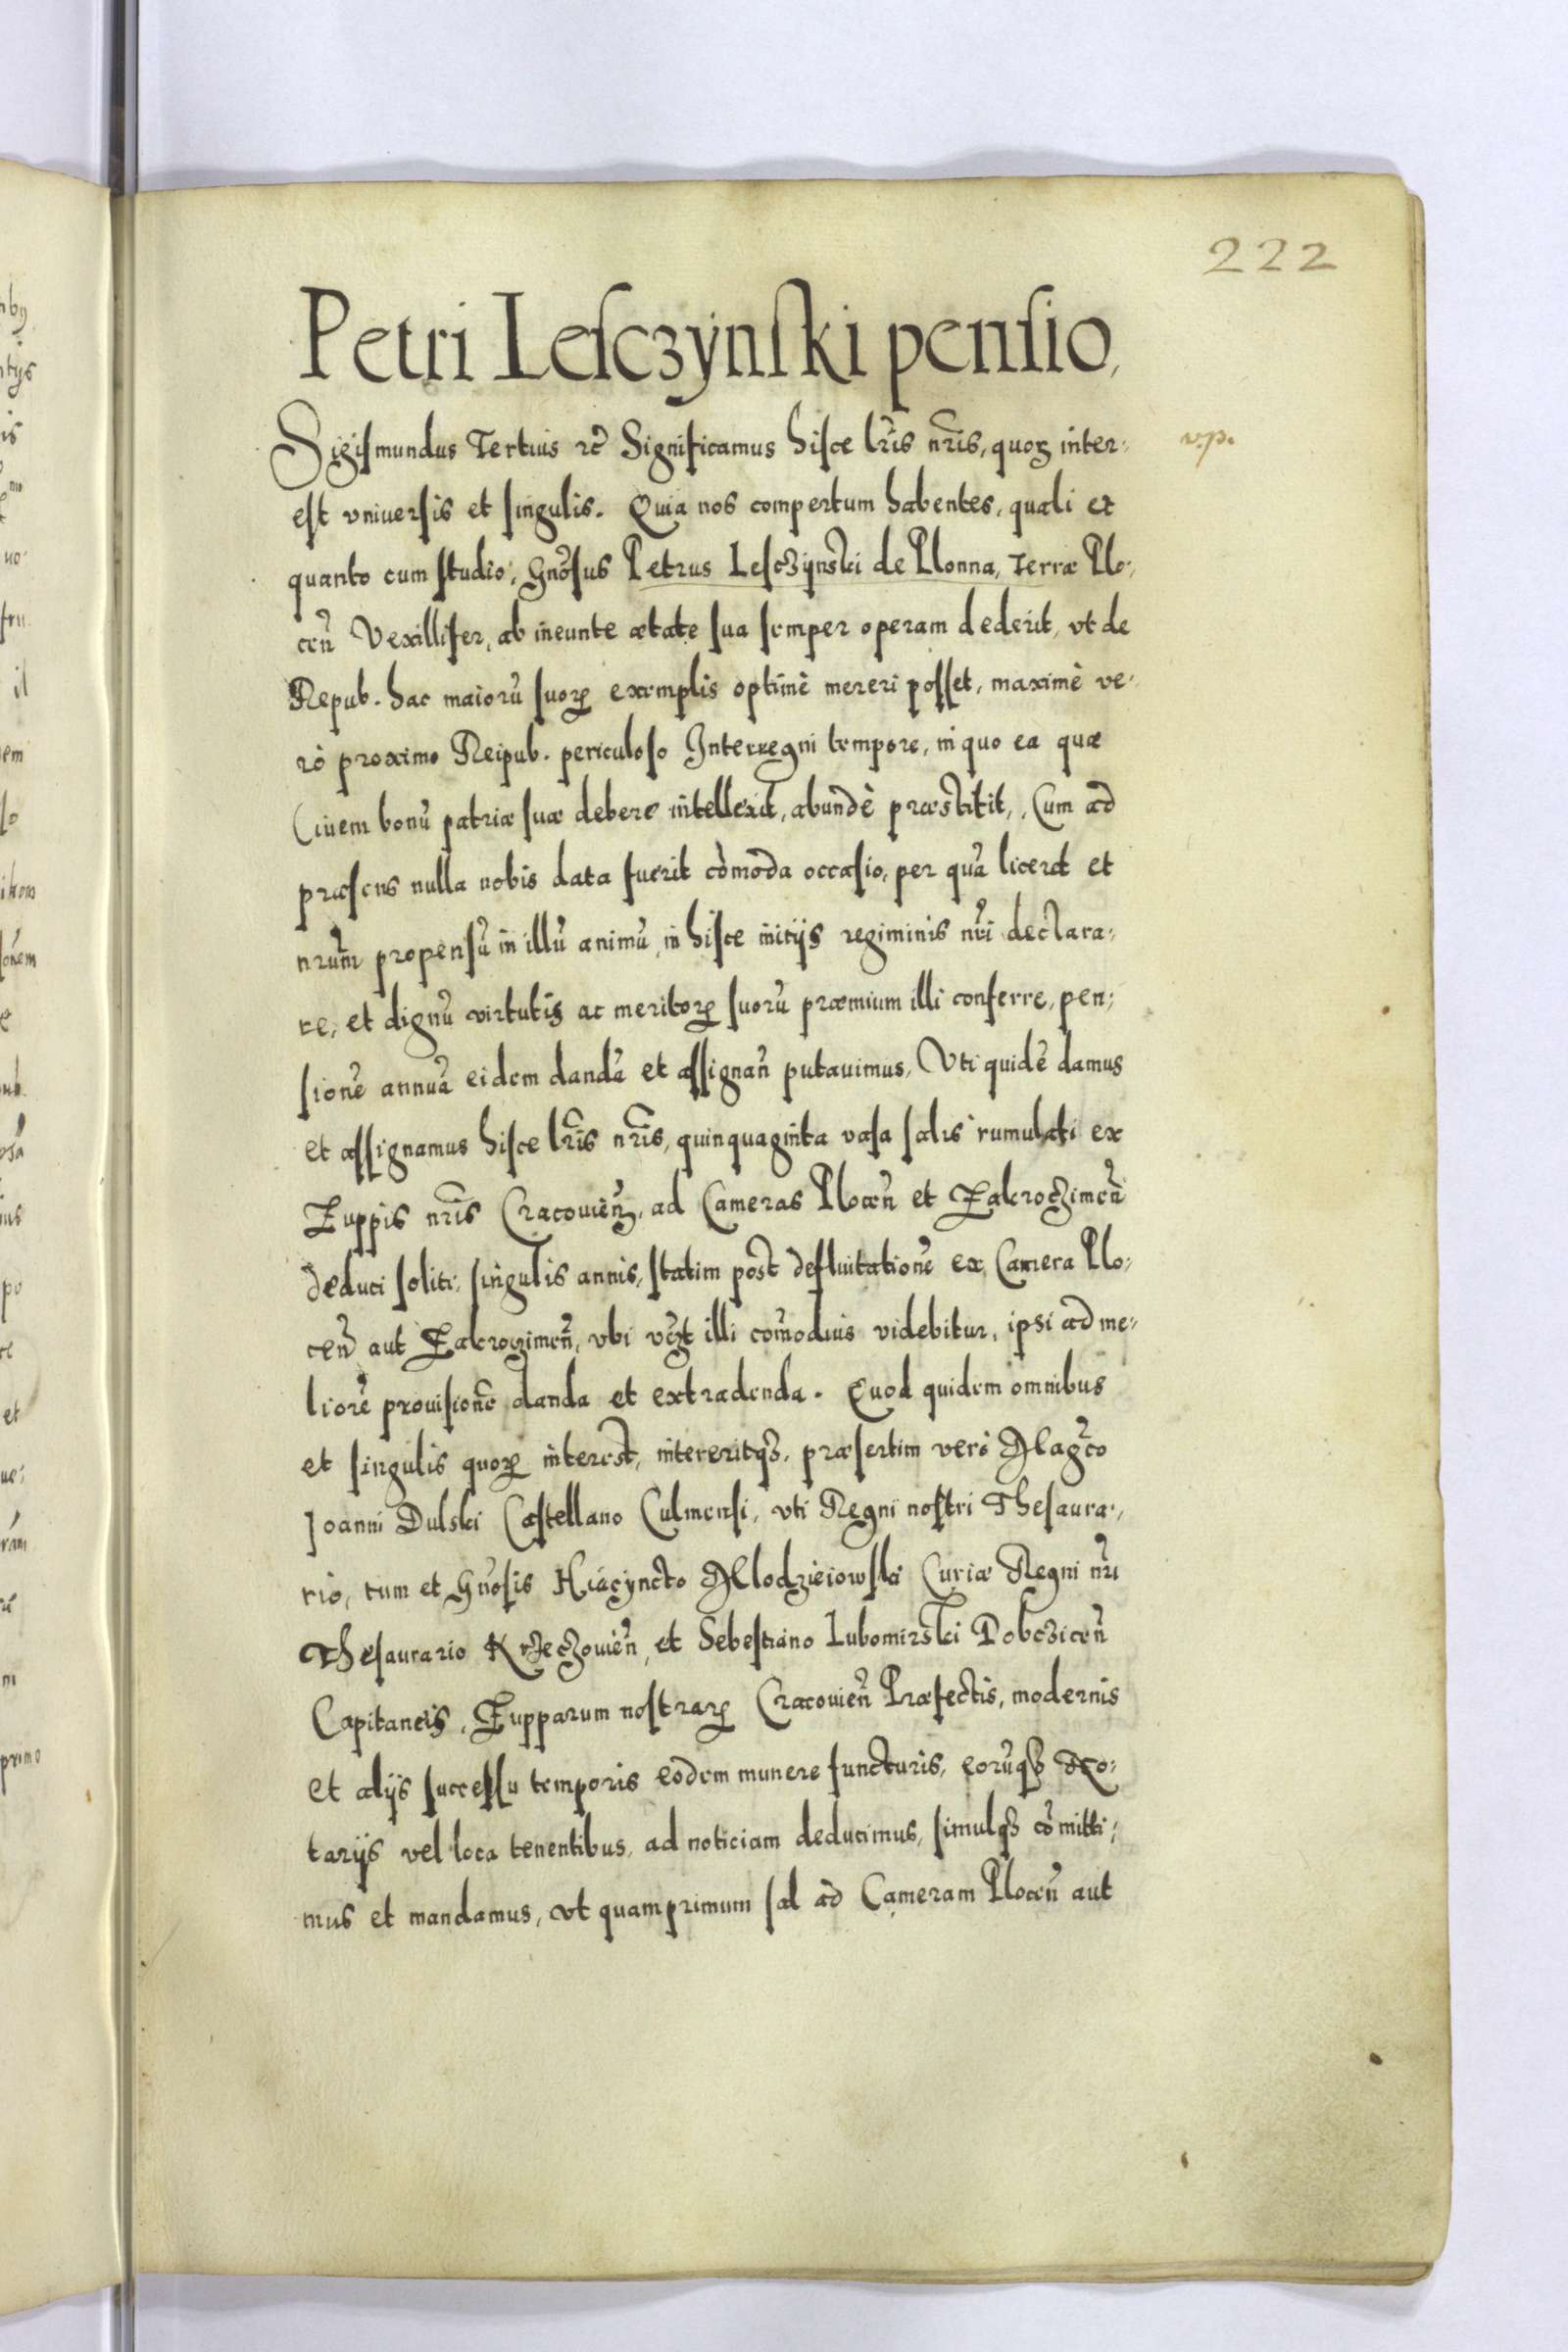 222
Petri Lesczÿnski pensio,
Sigismundus Tertius rc̃ Significamus hisce lr̃is nr̃is, quoꝝ inter- v.p.
est vniuersis et singulis. Quia nos compertum habentes, quali et
quanto cum studio, Gnõsus Petrus Lesczÿnski de Plonna, Terræ Plo-
ceñ Vexillifer, ab ineunte ætate sua semper operam dederit, vt de
Repub. hac maiorũ suoꝝ exemplis optimè mereri posset, maximè ve-
rò proximo Reipub. periculoso Interregni tempore, in quo ea quæ
Ciuem bonũ patriæ suæ debere intellexit, abundè præstitit, Cum ad
præsens nulla nobis data fuerit cõmoda occasio, per quã liceret et
nrũm propensũ in illũ animũ, in hisce initijs regiminis nr̃i declara-
re, et dignũ virtutis ac meritoꝝ suorũ præmium illi conferre, pen-
sionẽ annuã eidem dandã et assignañ putauimus, Vti quidẽ damus
et assignamus hisce lr̃is nr̃is, quinquaginta vasa salis cumulati ex
Zuppis nr̃is Cracouieñ, ad Cameras Ploceñ et Zakroczimeñ
deduci soliti, singulis annis, statim post defluitationẽ ex Camera Plo-
ceñ aut Zakroczimeñ, vbi vcz̃t illi com̃odius videbitur, ipsi ad me-
liorẽ prouisionẽ danda et extradenda. Quod quidem omnibus
et singulis quoꝝ interest, intereritqʒ, præsertim verò Mag̃co
Joanni Dulski Castellano Culmensi, vti Regni nostri Thesaura-
rio, tum et Gnõsis Hiacÿncto Mlodzieiowski Curiæ Regni nr̃i
Thesaurario Krzeczouieñ, et Sebestiano Lubomirski Dobcziceñ
Capitaneis, Zupparum nostraꝝ Cracouieñ Præfectis, modernis
et alijs successu temporis eodem munere functuris, eorũqʒ No-
tarijs vel loca tenentibus, ad noticiam deducimus, simulqʒ cõmitti-
mus et mandamus, vt quamprimum sal ad Cameram Ploceñ aut